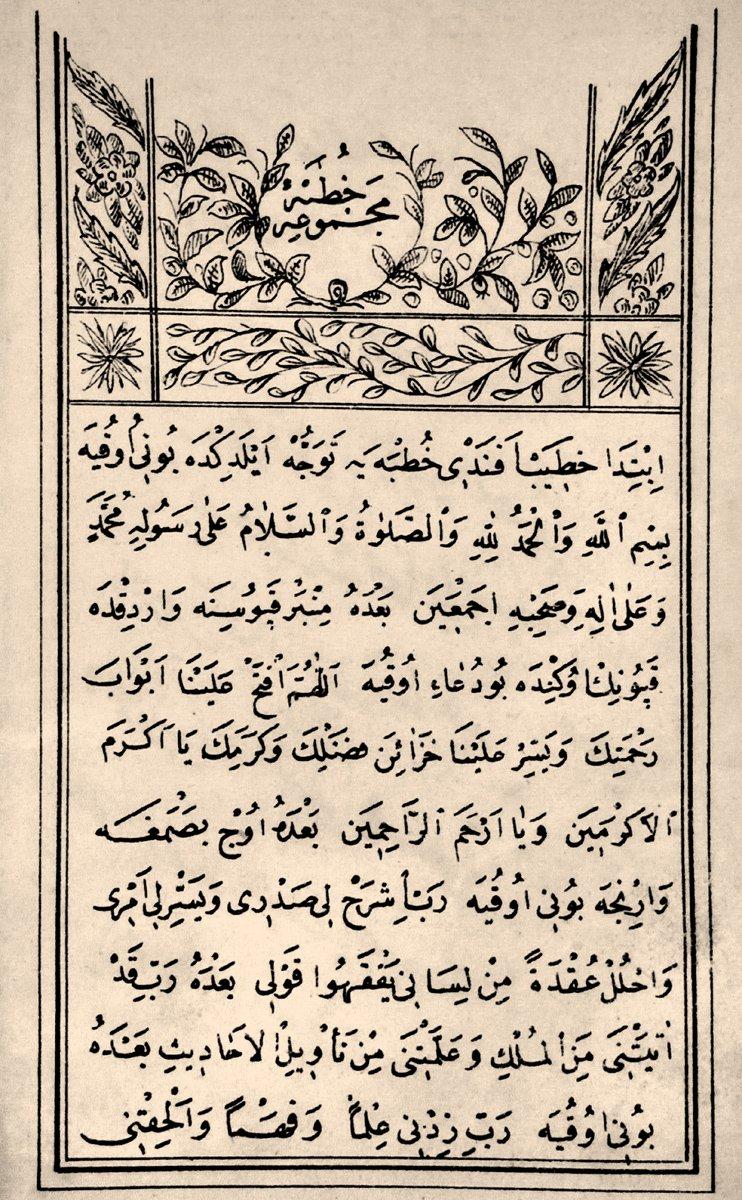 مَجْمُوعَهِ
خُطْبَهْ
اِبْتِدَا خطِيبْ اَفَنْدِى خُطْبَه يَه تَوَجُّهْ اَيْلَدِكْدَه بُونِى اُوقُيَه
بِسْمِ ٱللّٰهِ وَٱلْحَمْدُ لِلّٰهِ وَٱلصَّلٰوةُ وَٱلسَّلَامُ عَلٰى رَسُولِهِ مُحَمَّدٍ
وَعَلٰى اٰلِهِ وَصَحْبِهِ اَجْمَعِينَ بَعْدَهُ مِنْبَرْ قَپُوسِنَه وَارْدِقْدَه
قَپُونِكْ اُوكُنْدَه بُو دُعَاءِ اُوقُيَه اَللّٰهُمَّ افْتَحْ عَلَيْنَا اَبْوَابَ
رَحْمَتِكَ وَيَسِّرْ عَلَيْنَا خَزَائِنَ فضْلِكَ وَكَرَمِكَ يَا اَكْرَمَ
ٱلاَكْرَمِينَ وَيَا اَرْحَمَ ٱلرَّاحِمِينَ بَعْدَهُ اُوچْ بصَمَغَه
وَارِنْجَه بُونِى اُوقُيَه رَبِّ اشْرَحْ لِى صَدْرِى وَيَسِّرْ لِى اَمْرِى
وَاحْلُلْ عُقْدَةً مِنْ لِسَانِى يَفْقَهُوا قَوْلِى بَعْدَهُ رَبِّ قَدْ
اٰتَيْتَنِى مِنَ ٱلْمُلْكِ وَعَلَّمْتَنِى مِنْ تَأْوِيلِ ٱلْاَحَادِيثِ بَعْدَهُ
بُونِى اُوقُيَه رَبِّ زِدْنِى عِلْمًا وَفَهْمًا وَاَلْحِقْنِى